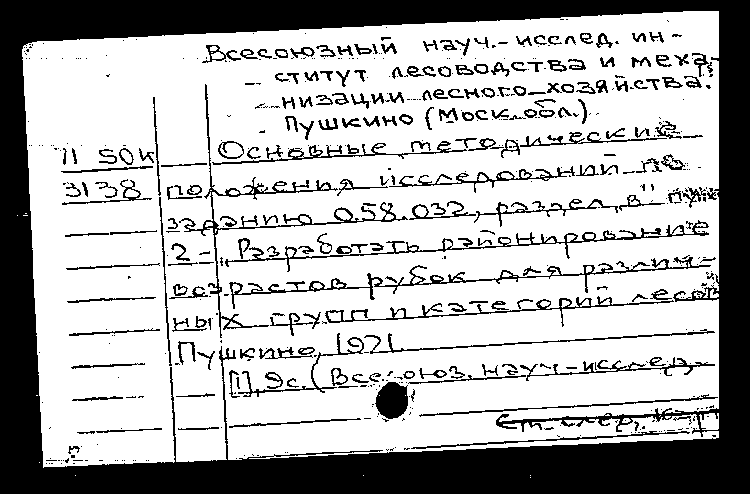 Всесоюзный науч.-исслед. ин-
ститут лесоводства и меха-
низации лесного хозяйства.
Пушкино (Моск. обл.).
11 50к Основные методические
3138 положения исследований по
заданию 0.58.032, раздел "в" пункт
2 - "Разработать районирование
возрастов рубок для различ-
ных групп и категорий лесов"
Пушкино, 1971
[1], 9с. (Всесоюз. науч-исслед.
См. след. к-т